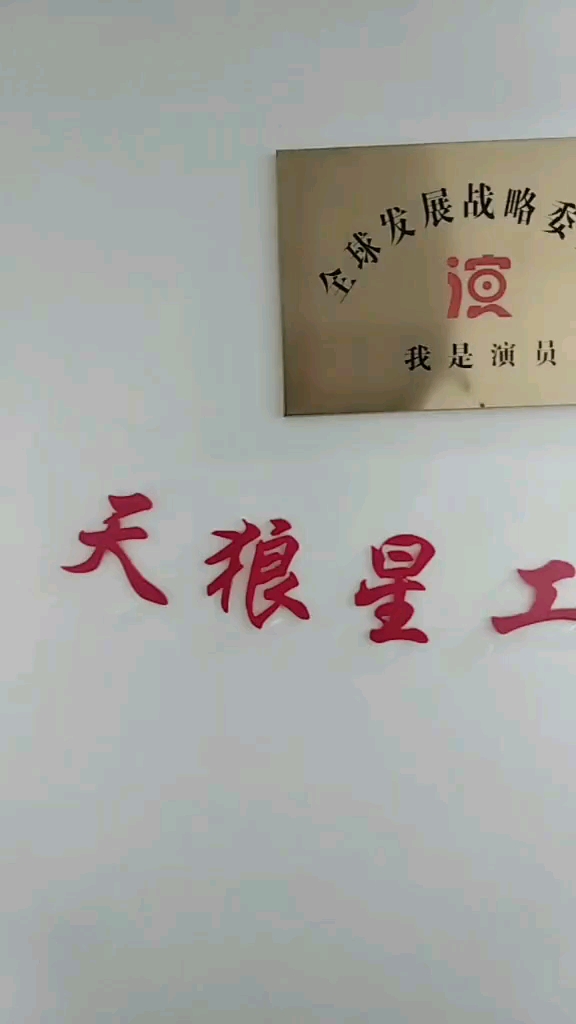 全球发展战略委
演
我是演员
天狼星工